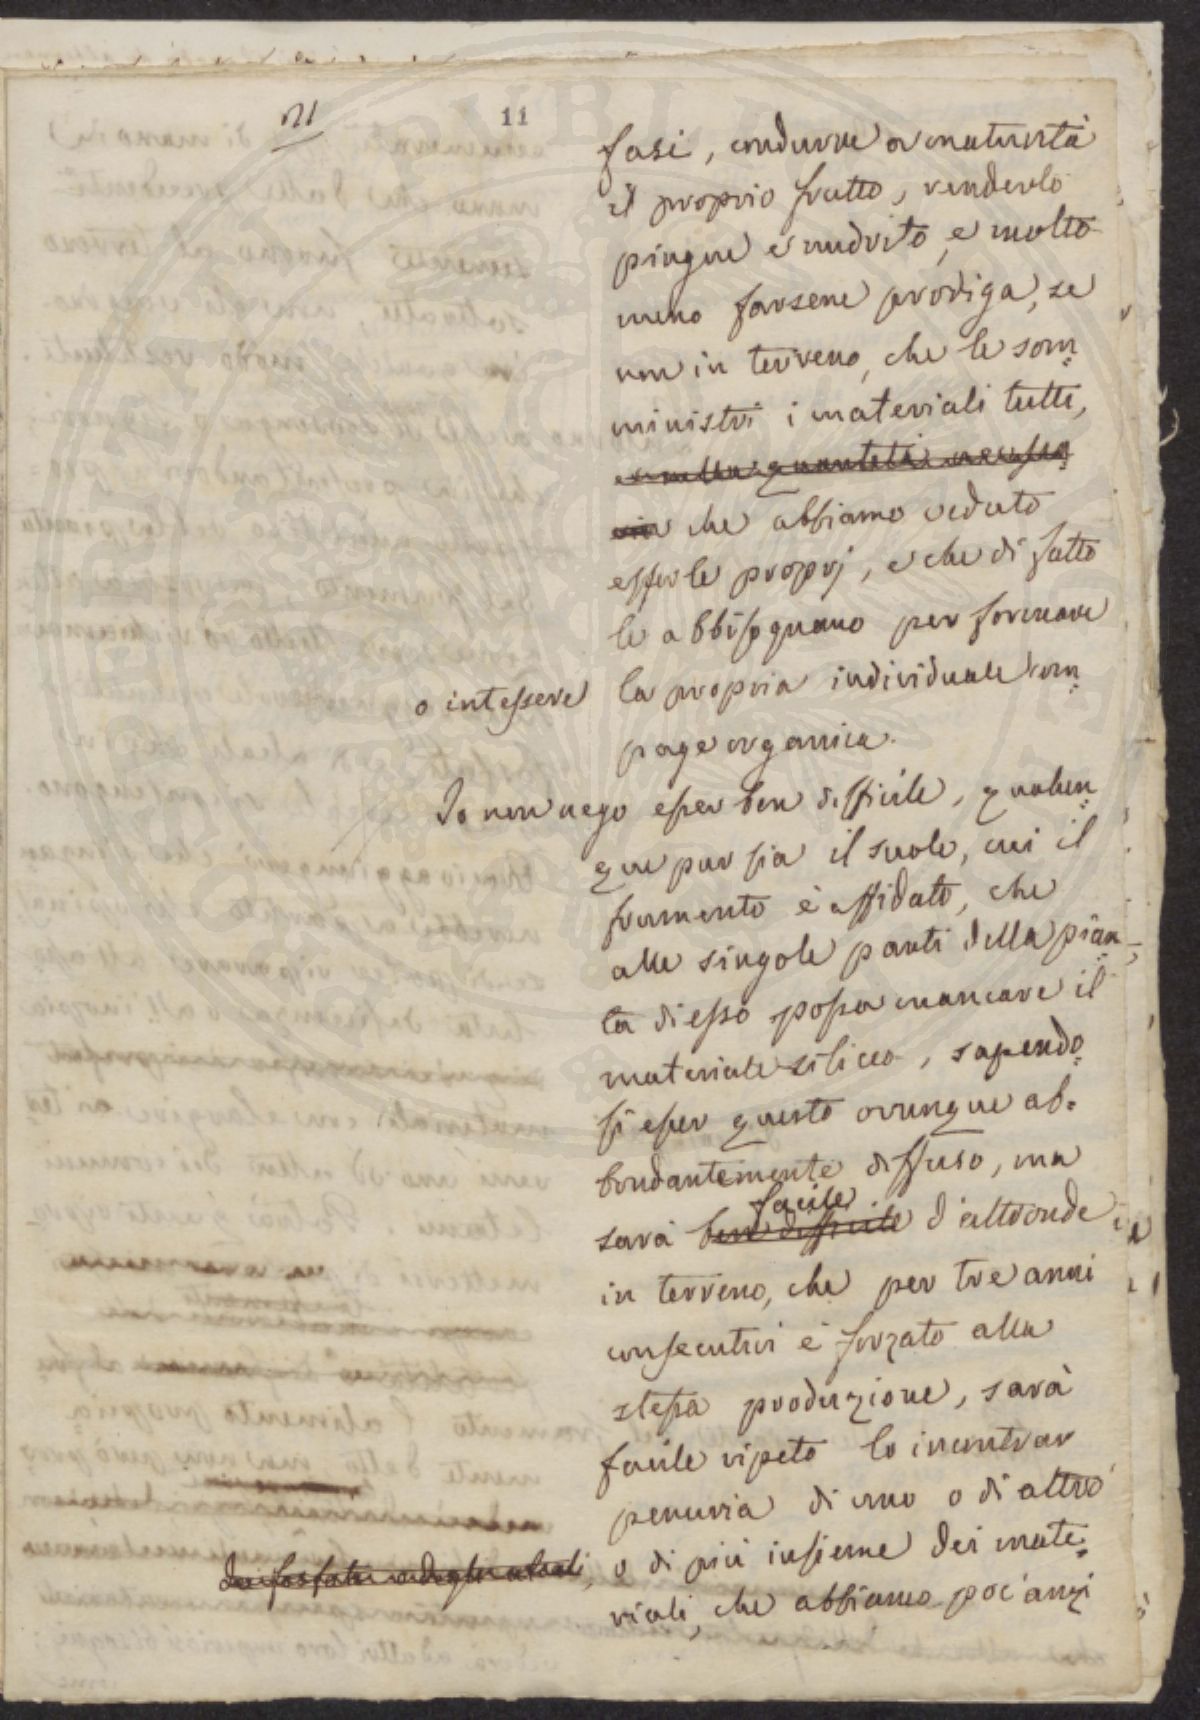 11
fasi, condurre a maturità
il proprio frutto, renderlo
pingue e nudrito, e molto
meno farsene prodiga, se
non in terreno, che le som=
ministri i materiali tutti,
e nella quantità necessa=
ria che abbiamo veduto
esserle proprj, e che di fatto
le abbisognano per formare
o intessere la propria individuale com=
page organica.
Io non nego esser ben difficile, qualun=
que pur sia il suolo, cui il
frumento è affidato, che
alle singole parti della pian=
ta di esso possa mancare il
materiale siliceo, sapendo=
si esser questo ovunque ab=
bondantemente diffuso, ma
facile
sarà ben difficile d'altronde
in terreno, che per tre anni
consecutivi è forzato alla
stessa produzione, sarà
facile ripeto lo incontrar
penuria di uno o di altro
dei fosfati o degli alcali, o di più insieme dei mate=
riali, che abbiamo poc'anzi